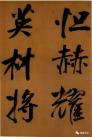 赫耀
英材将